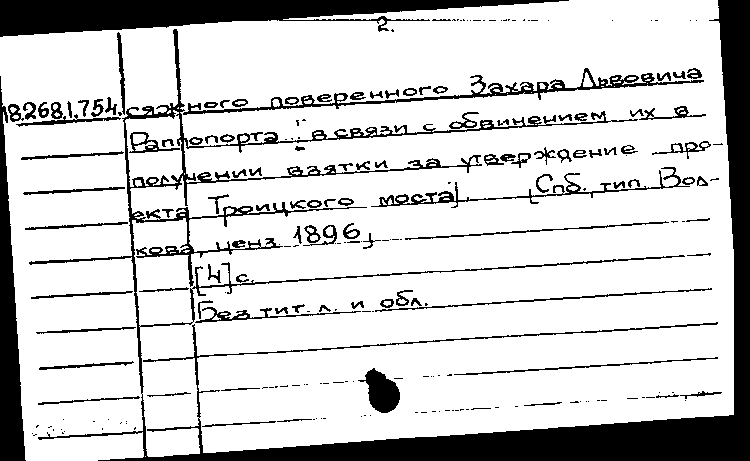 2.
18.268.1.754. сяжного поверенного Захара Львовича
Раппопорта : в связи с обвинением их в
получении взятки за утверждение про-
екта Троицкого моста]. [Спб., тип. Вол-
кова, ценз 1896]
[4] с.
Без тит. л. и обл.